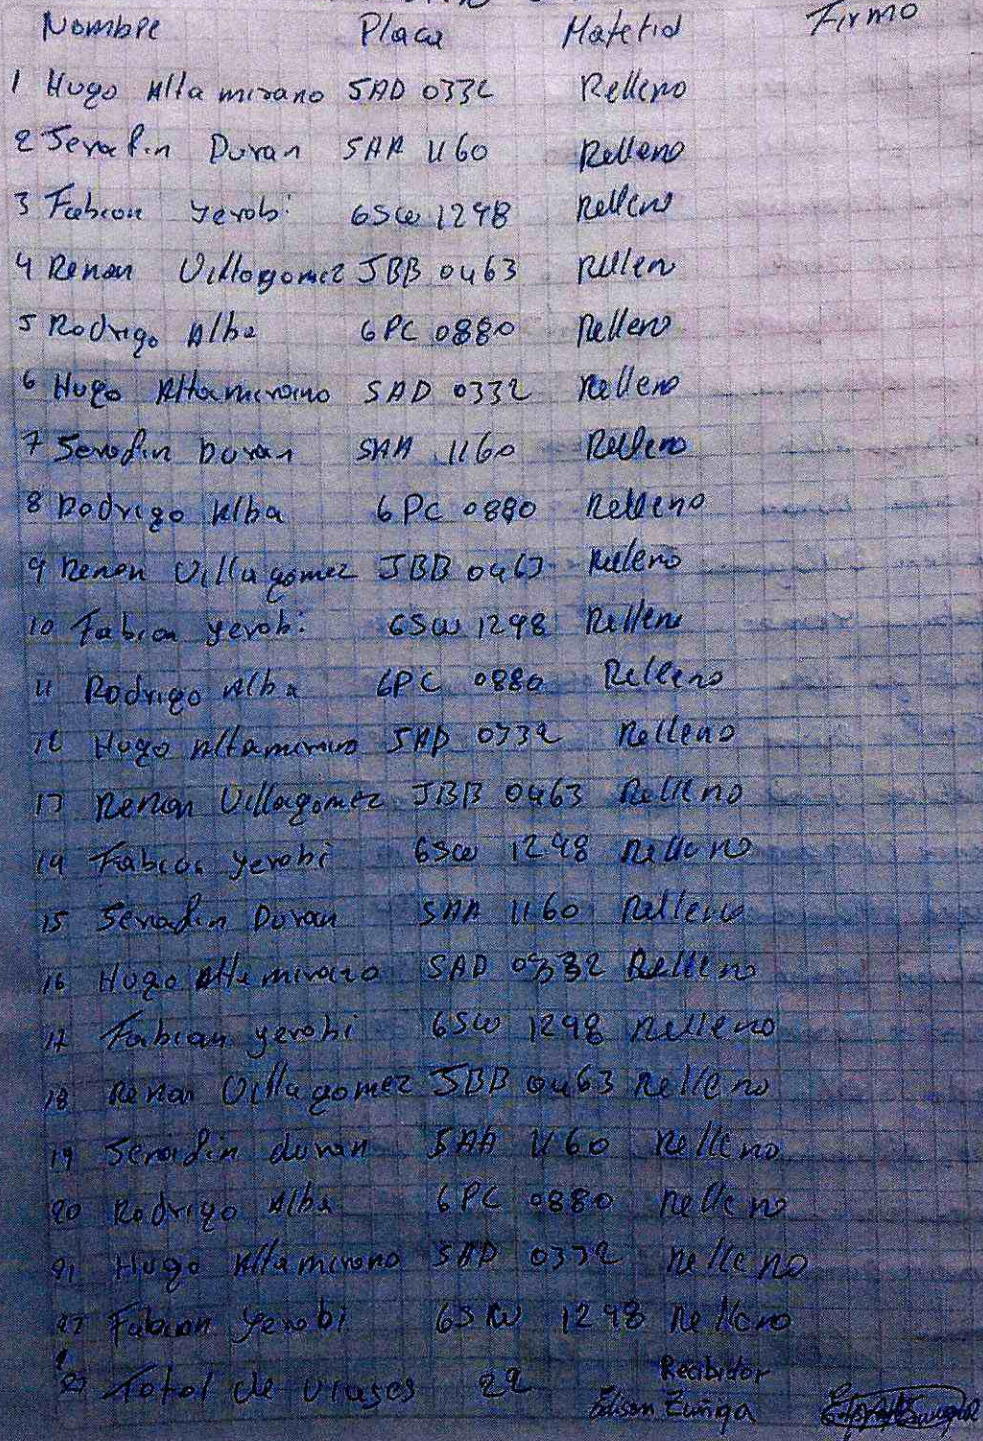 Nombre Placa Material Firma
1 Hugo Altamirano SAD 0332 Relleno
2 Serafin Duran SAA 1160 Relleno
3 Fabian yerobi GSW 1298 Relleno
4 Renan Villagomez JBB 0463 Relleno
5 Rodrigo Alba GPC 0880 Relleno
6 Hugo Altamirano SAD 0332 Relleno
7 Serafin Duran SAA 1160 Relleno
8 Rodrigo Alba GPC 0880 Relleno
9 Renan Villagomez JBB 0463 Relleno
10 Fabian yerobi GSW 1298 Relleno
11 Rodrigo Alba GPC 0880 Relleno
12 Hugo Altamirano SAD 0332 Relleno
13 Renan Villagomez JBB 0463 Relleno
14 Fabian yerobi GSW 1298 Relleno
15 Serafin Duran SAA 1160 Relleno
16 Hugo Altamirano SAD 0332 Relleno
17 Fabian yerobi GSW 1298 Relleno
18 Renan Villagomez JBB 0463 Relleno
19 Serafin duran SAA 1160 Relleno
20 Rodrigo Alba GPC 0880 Relleno
21 Hugo Altamirano SAD 0332 Relleno
22 Fabian yerobi GSW 1298 Relleno
Total de viages 22 Recibidor
Edison Zuñiga